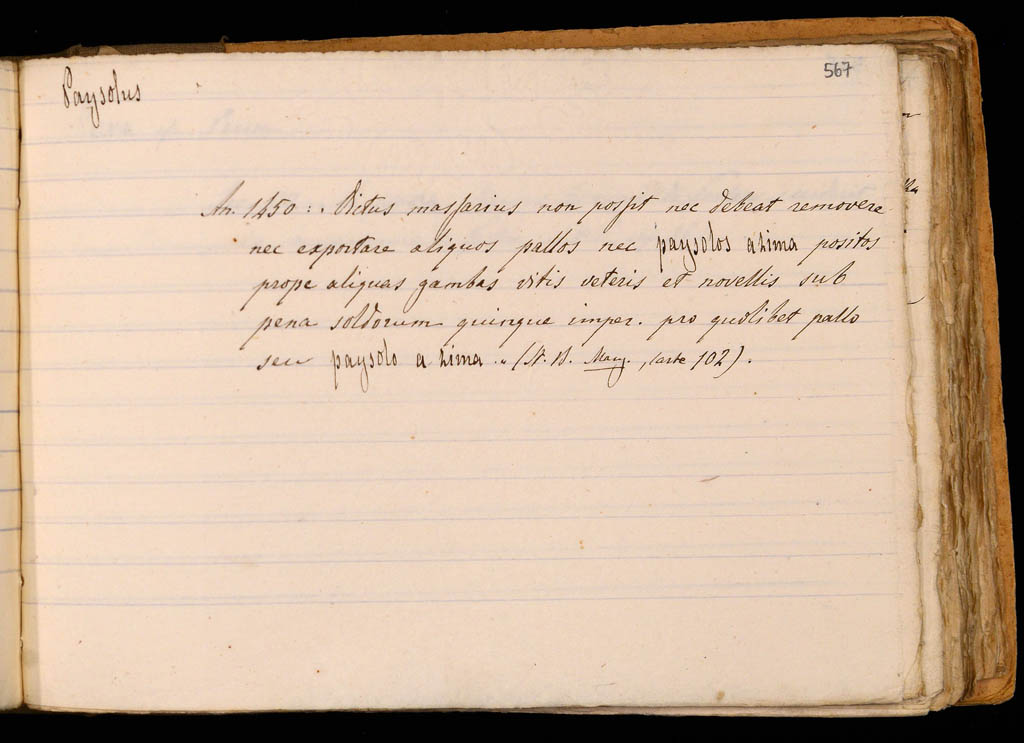 567
Paysolus
An. 1450: „ Dictus massarius non possit nec debeat removere
nec exportare aliquos pallos nec paysolos a zima positos
prope aliquas gambas vitis veteris et novellis sub
pena soldorum quinque imper. pro quolibet pallo
seu paysolo a zima „ (St. B. , carte 102).